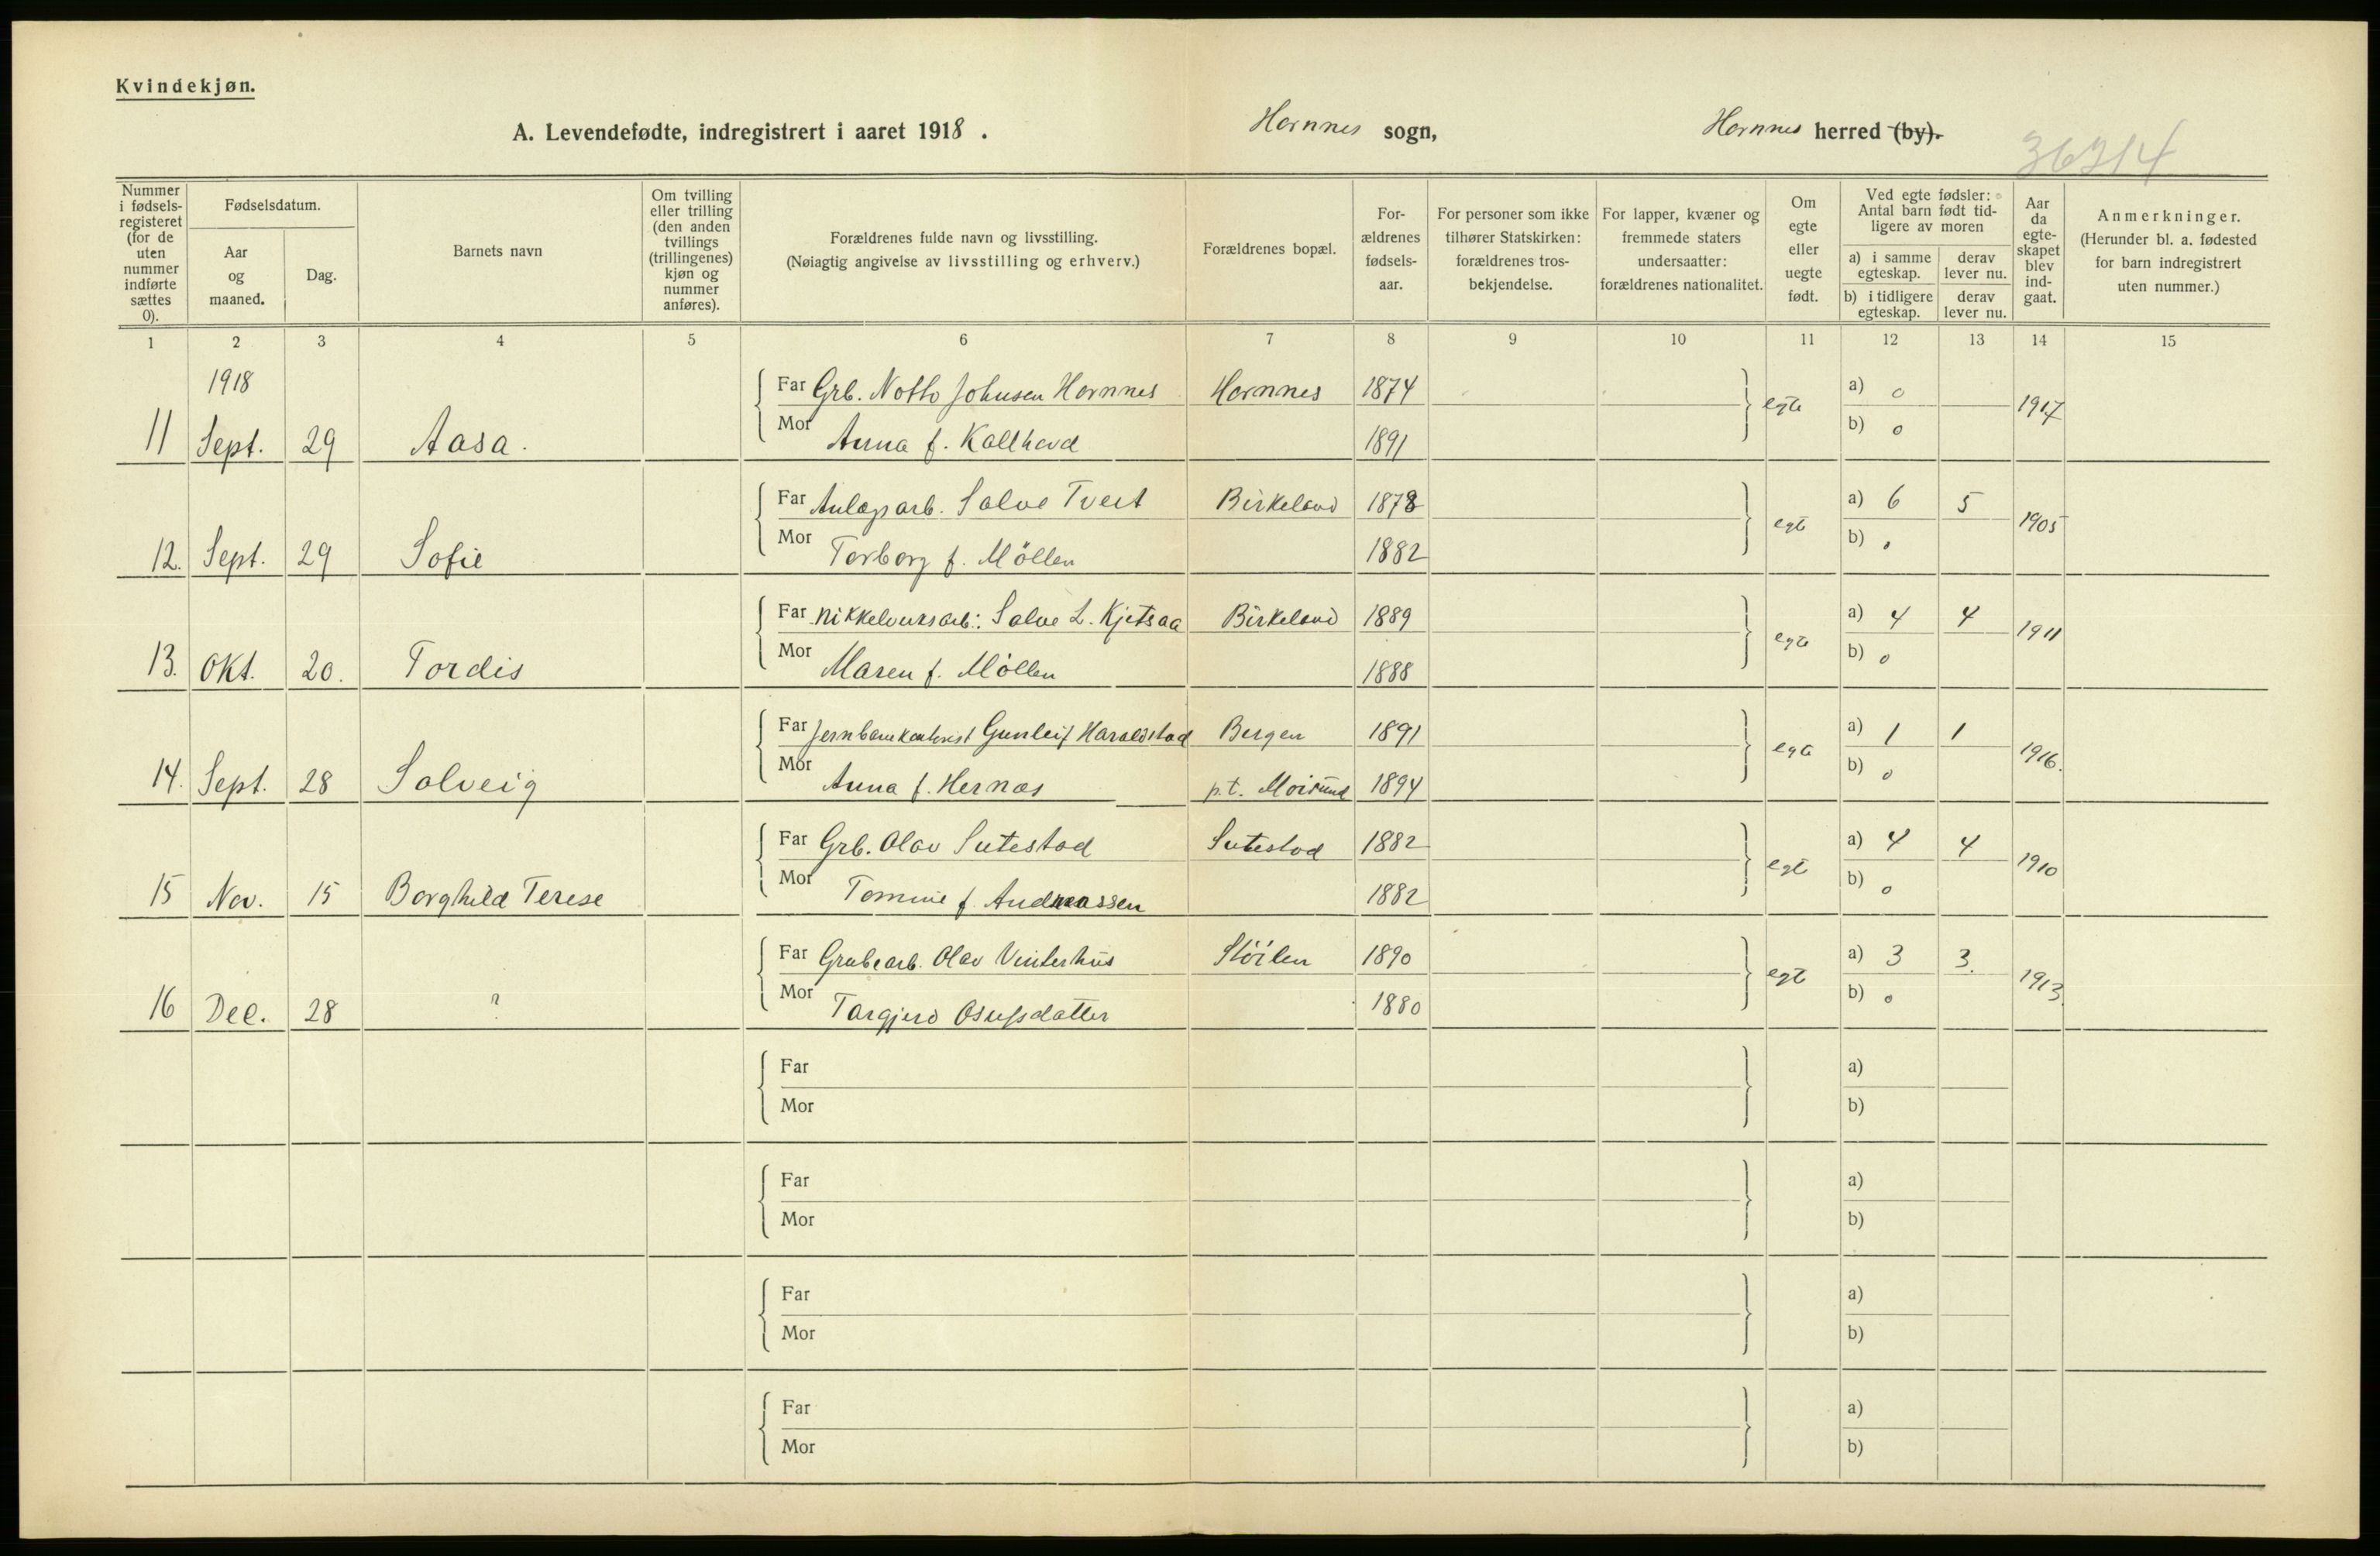 Kvindekjøn.
A. Levendefødte, indregistrert i aaret 1918 . Hornnes sogn, Hornnes herred (by).
36214
Nummer i fødsels-registeret (for de uten nummer indførte sættes 0).
Fødselsdatum.
Aar og maaned.
Dag.
Barnets navn
Om tvilling eller trilling (den anden tvillings (trillingenes) kjøn og nummer anføres).
Forældrenes fulde navn og livsstilling.
(Nøiagtig angivelse av livsstilling og erhverv.)
Forældrenes bopæl.
For-ældrenes fødsels-aar.
For personer som ikke tilhører Statskirken: forældrenes tros-bekjendelse.
For lapper, kvæner og fremmede staters undersaatter: forældrenes nationalitet.
Om egte eller uegte født.
Ved egte fødsler: Antal barn født tid-ligere av moren
a) i samme egteskap.
derav lever nu.
b) i tidligere egteskap.
derav lever nu.
Aar da egte-skapet blev ind-gaat.
Anmerkninger.
(Herunder bl. a. fødested for barn indregistrert uten nummer.)
1 2 3 4 5 6 7 8 9 10 11 12 13 14 15
1918
Far Grb. Notto Johnsen Hornnes Hornnes 1874 a) 0
11 Sept. 29 Aasa. Mor Anna f. Kallhovd 1891 egte b) 0 1917
Far Anlægsarb. Salve Tveit Birkeland 1878 a) 6 5
12. Sept. 29 Sofie Mor Torborg f. Möllen 1882 egte b) 0 1905
Far Nikkelverksarb: Salve L. Kjetsaa Birkeland 1889 a) 4 4
13. Okt. 20. Tordis Mor Maren f. Möllen 1888 egte b) 0 1911
Far Jernbanekontorist Gunleif Haraldstad Bergen 1891 a) 1 1
14. Sept. 28 Solveig Mor Anna f. Hernæs p.t. Moisund 1894 egte b) 0 1916.
Far Grb. Olav Sutestad Sutestad 1882 a) 4 4
15 Nov. 15 Borghild Terese Mor Tomine f. Andreassen 1882 egte b) 0 1910
Far Grubearb. Olav Vinterhus Stöilen 1890 a) 3 3.
16 Dec. 28 ? Mor Torgjerd Osufsdatter 1880 egte b) 0 1913.
Far a)
Mor b)
Far a)
Mor b)
Far a)
Mor b)
Far a)
Mor b)